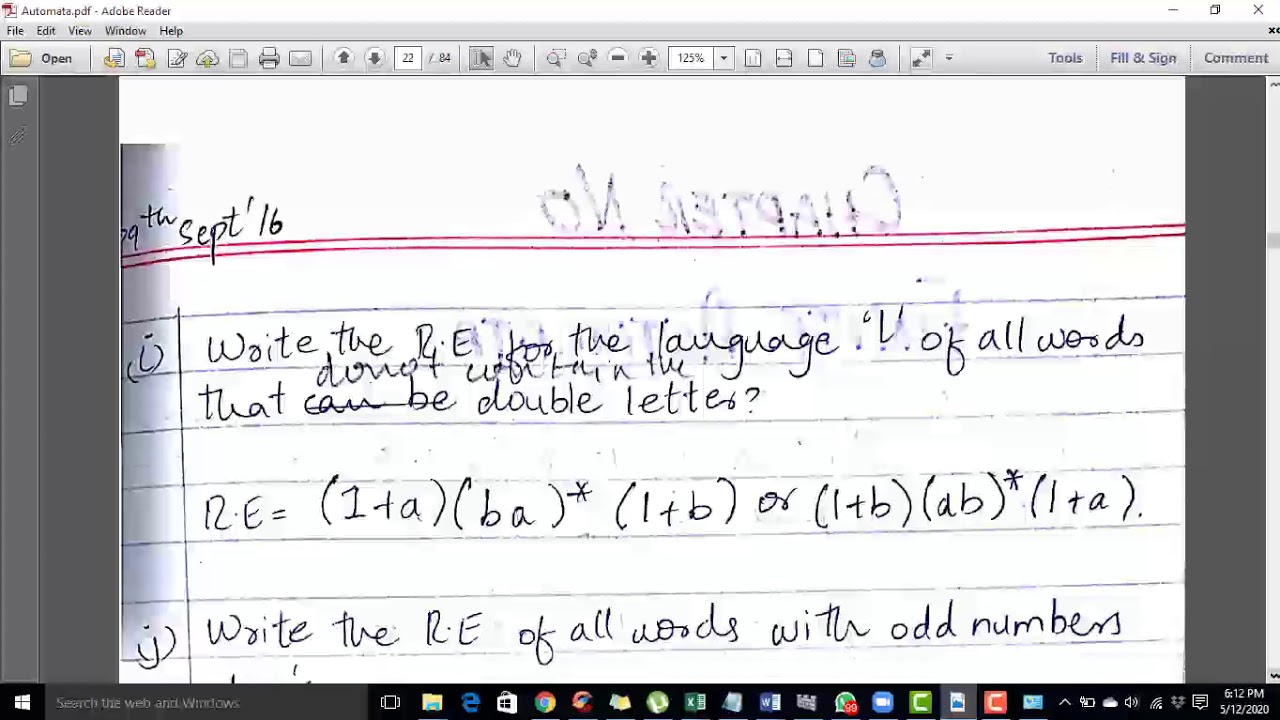 Automata.pdf - Adobe Reader
File Edit View Window Help
Open 22 / 84 125% Tools Fill & Sign Comment
CHAPTER No
29th Sept '16
(i) Write the R.E for the language 'L' of all words
donot contain the
that can be double letter?
R.E = (1+a)(ba)* (1+b) or (1+b)(ab)*(1+a).
j) Write the R.E of all words with odd numbers
Search the web and Windows
99
6:12 PM
5/12/2020